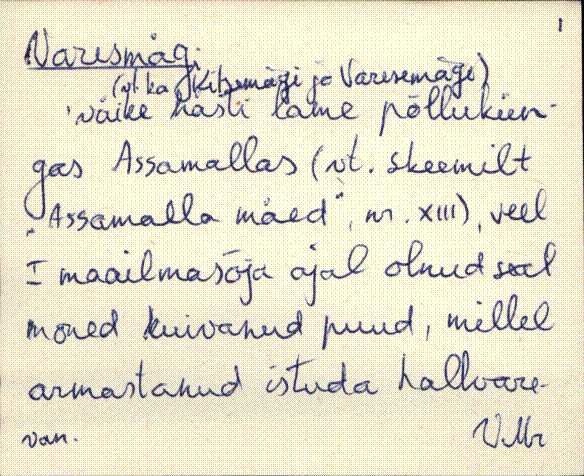 1
Naresmägi
(vt. ka Kitsemägi ja Varesemägi)
väike hästi lame põllukün-
gas Assamallas (vt. skeemilt
"Assamalla mäed", nr. XIII), veel
I maailmasõja ajal olnud seal
mõned kuivanud puud, millel
armastanud istuda hallvare-
van.
V.Mr